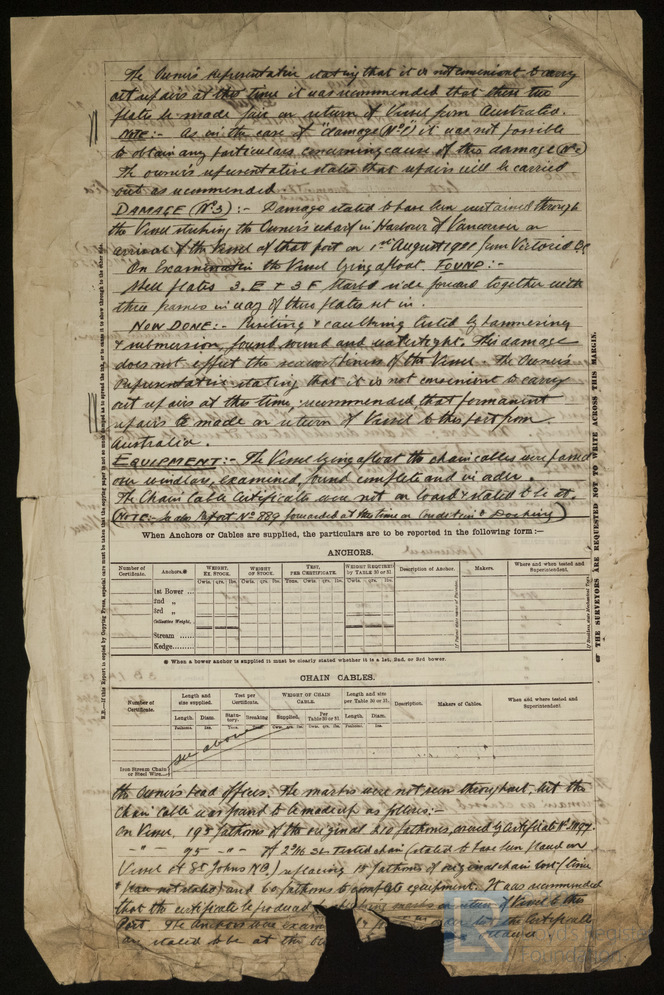 The Owner's Representative stating that it is not convenient to carry
out repairs at this time it was recommended that these two
plates be made fair on return of Vessel from Australia.
NOTE:- As in the case of "damage (No 1)" it was not possible
to obtain any particulars concerning cause of this damage (No 2)
The owner's representative states that repairs will be carried
out as recommended.
DAMAGE (No 3):- Damage stated to have been sustained through
the Vessel striking the Owner's wharf in Harbour of Vancouver on
arrival of the Vessel at that port on 1st August 1911 from Victoria B.C
On Examination the Vessel lying afloat. FOUND:-
Shell plates 3.E & 3 F Starbd side forward together with
three frames in way of these plates set in.
NOW DONE:- Riveting & caulking tested by hammering
& submersion, found sound and watertight. This damage
does not effect the seaworthiness of the Vessel. The Owner's
Representative stating that it is not convenient to carry
out repairs at this time, recommended that permanent
repairs be made on return of Vessel to this port from
Australia.
EQUIPMENT:- The Vessel lying afloat the chain cables were passed
over windlass, examined, found complete and in order.
The Chain Cable Certificates were not on board & stated to be at
(NOTE:- See also Report No 889 forwarded at this time on Condition & Docking)
When Anchors or Cables are supplied, the particulars are to be reported in the following form:—
ANCHORS.
Number of Certificate. Anchors.* WEIGHT, EX. STOCK. WEIGHT OF STOCK. TEST, PER CERTIFICATE. WEIGHT REQUIRED by TABLE 30 or 31. Description of Anchor. Makers. Where and when tested and Superintendent.
Cwts. qrs. lbs. Cwts. qrs. lbs. Tons. Cwts. qrs. lbs. Cwts. qrs. lbs.
1st Bower ...
2nd „
3rd „
Collective Weight.
Stream ...
Kedge......
* When a bower anchor is supplied it must be clearly stated whether it is a 1st, 2nd, or 3rd bower.
CHAIN CABLES.
Number of Certificate. Length and size supplied. Test per Certificate. WEIGHT OF CHAIN CABLE. Length and size per Table 30 or 31. Description. Makers of Cables. When and where tested and Superintendent.
Length. Diam. Statutory. Breaking Supplied. Per Table 30 or 31. Length. Diam.
see above
Iron Stream Chain or Steel Wire...
the Owner's head offices. The marks were not seen throughout, but the
Chain Cable was found to be made up as follows:-
On Vessel 195 fathoms of the original 210 fathoms, covered by Certificate No
-"- 75 -"- of 2 3/16 ins tested chain (stated to have been placed on
Vessel at St Johns N.B.) replacing 15 fathoms of original chain lost (time
& place not stated) and 60 fathoms to complete equipment. It was recommended
that the certificate be produced on return of Vessel to this
Port. The Anchors were exam the Certificate
are stated to be at the
N.B.—If this Report is copied by Copying Press, especial care must be taken that the copying paper is not so much damped as to spread the ink, or to cause it to show through to the other side.
THE SURVEYORS ARE REQUESTED NOT TO WRITE ACROSS THIS MARGIN.
Lloyd's Register
Foundation